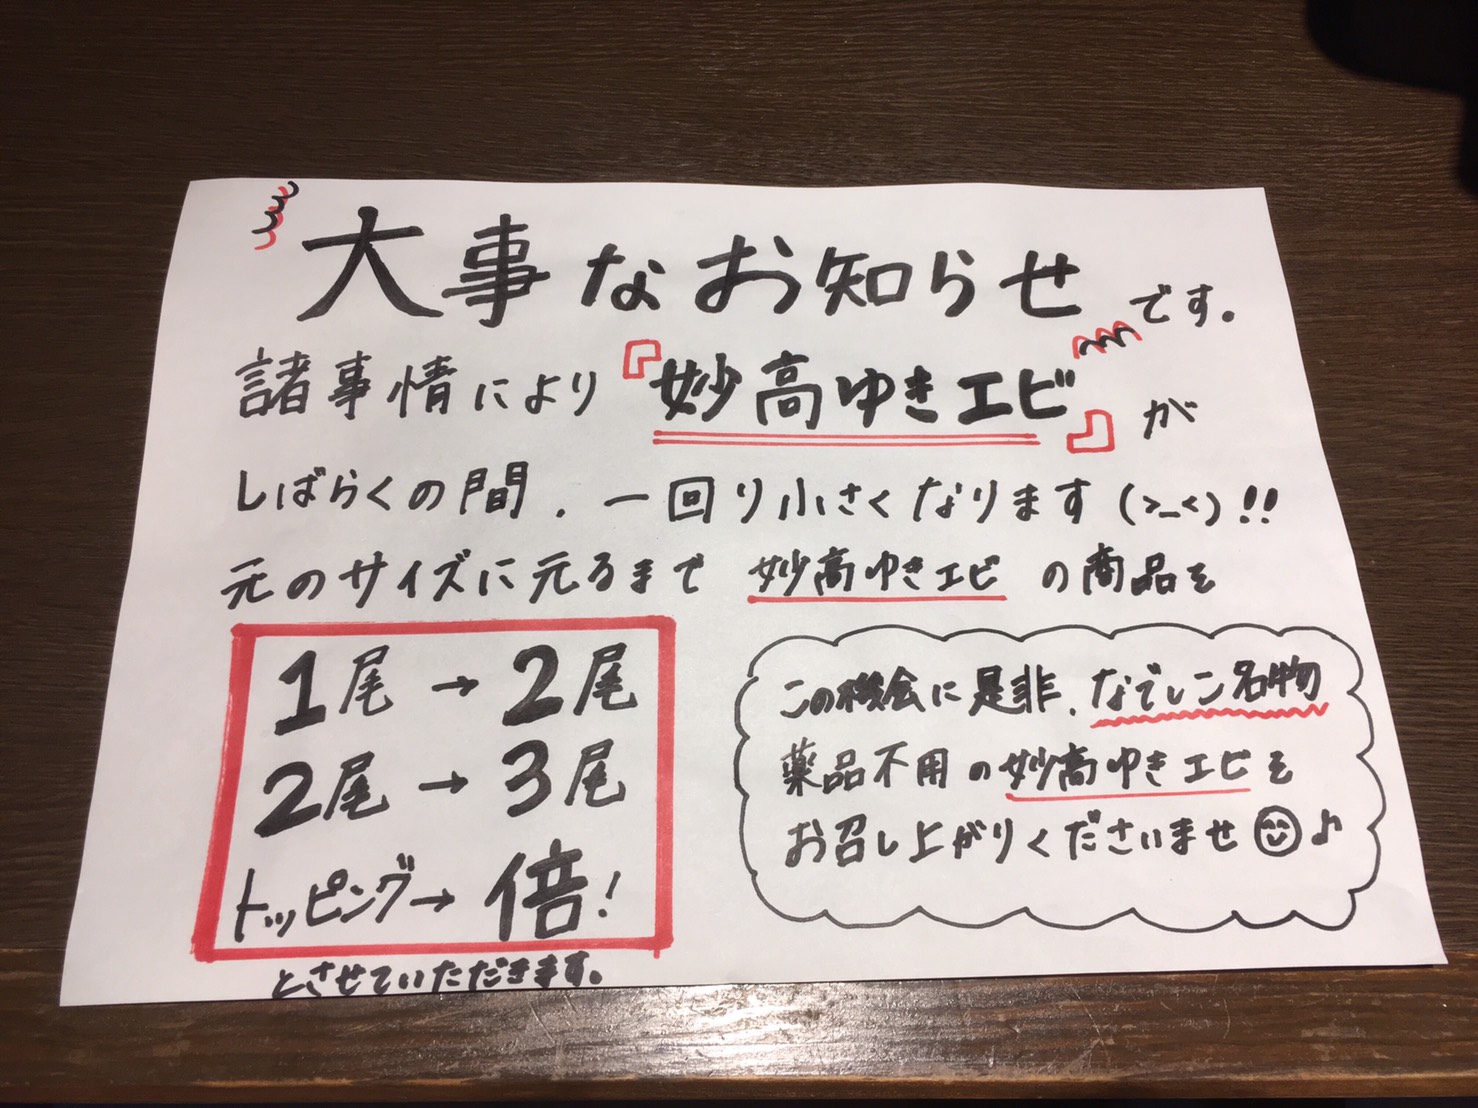 大事なお知らせです。
諸事情により『妙高ゆきエビ』が
しばらくの間、一回り小さくなります(>_<)!!
元のサイズに元るまで 妙高ゆきエビ の商品を
1尾→2尾
2尾→3尾
トッピング→倍!
とさせていただきます。
この機会に是非、なでしン名物
薬品不用の妙高ゆきエビを
お召し上がりくださいませ😊♪